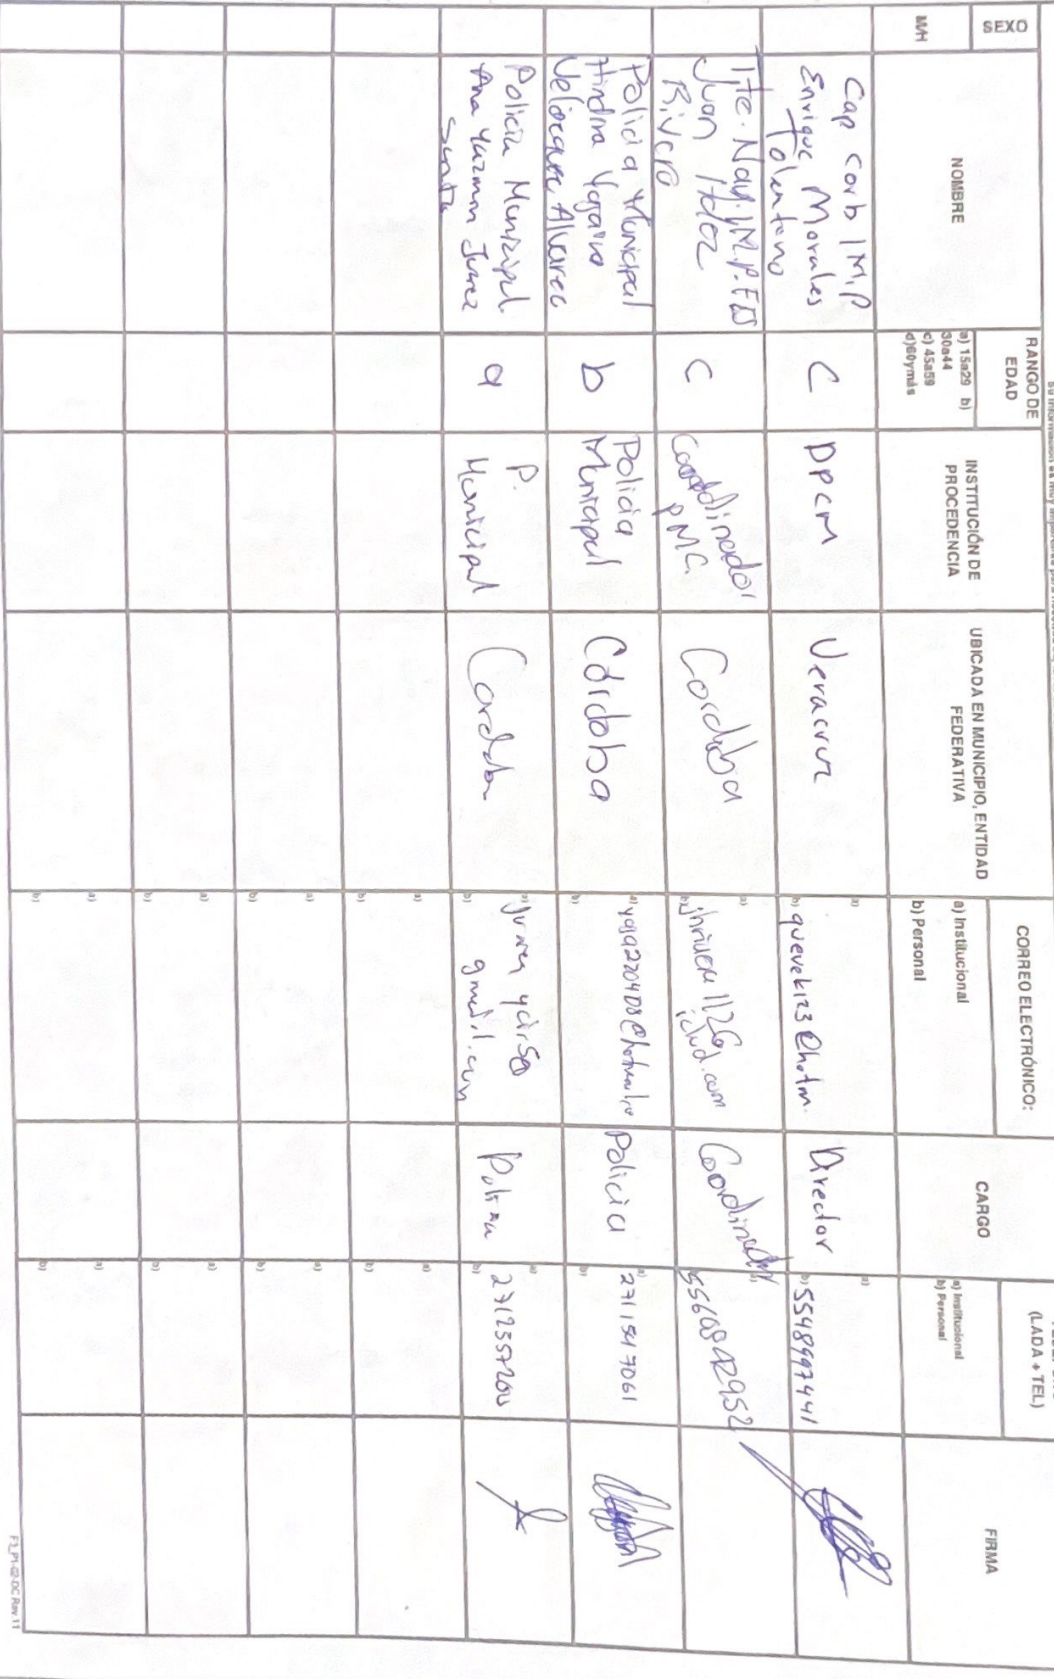 SEXO
M/H
NOMBRE
RANGO DE
EDAD
a) 15a29 b)
30a44
c) 45a59
d)60ymás
INSTITUCIÓN DE
PROCEDENCIA
UBICADA EN MUNICIPIO, ENTIDAD
FEDERATIVA
CORREO ELECTRÓNICO:
a) Institucional
b) Personal
CARGO
(LADA + TEL)
a) Institucional
b) Personal
FIRMA
Cap Corb I.M.P
Enrique Morales
Tolentino
C
DPCM
Veracruz
a)
b) quevek123@hotm.
Director
a)
b) 5548997441
Tte. Nav. I.M.P.
Juan Hdez
Rivero
C
Coordinador
PMC.
Cordoba
a)
b)
Coordinador
5560842952
Policia Municipal
Velazquez Alvarez
b
Policia
Municipal
Córdoba
a)
b)
Policia
a)
b)
2711547061
Policia Municipal
Ana Yazmin Juarez
a
P.
Municipal
Cordoba
a)
b)
gmail.com
Policia
a)
b)
a)
b)
a)
b)
a)
b)
a)
b)
a)
b)
a)
b)
a)
b)
a)
b)
F3_P1-02-DC Rev.11